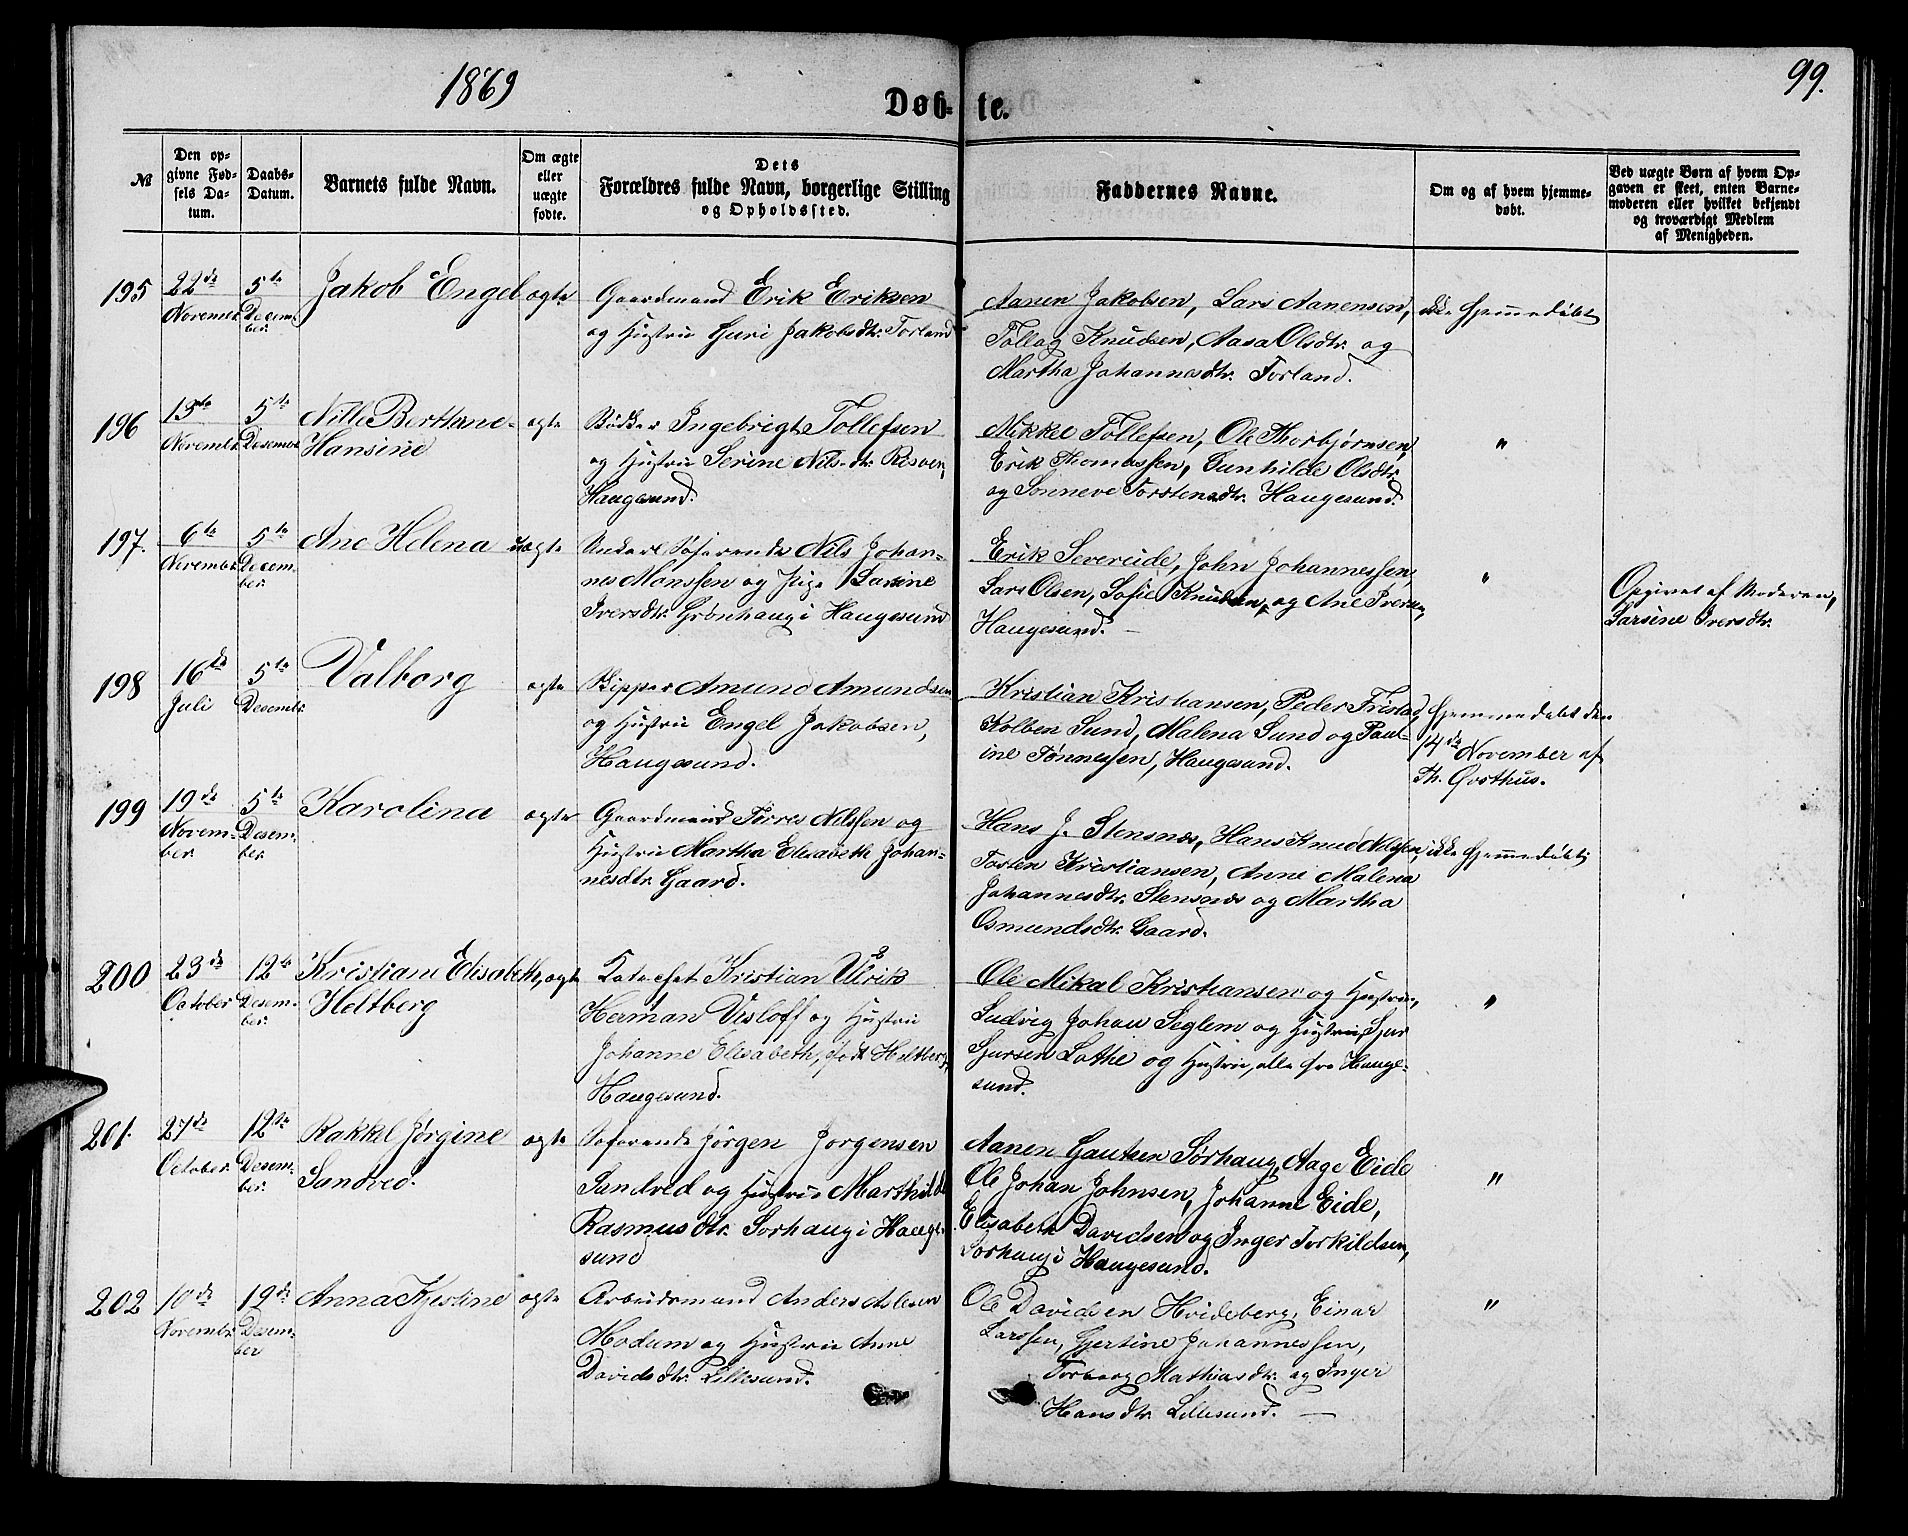 1869
99.
Døb-te.
№
Den op-
givne Fød-
sels Da-
tum.
Daabs-
Datum.
Barnets fulde Navn.
Om ægte
eller
uægte
fødte.
Dets
Forældres fulde Navn, borgerlige Stilling
og Opholdssted.
Faddernes Navne.
Om og af hvem hjemme-
døbt.
Ved uægte Børn af hvem Op-
gaven er skeet, enten Barne-
moderen eller hvilket bekjendt
og troværdigt Medlem
af Menigheden.
195
22de
November
5te
Decem-
ber.
Jakob Engel
ægte
Gaardmand Erik Eriksen
og Hustru Guri Jakobsdtr. Torland
Aanen Jakobsen, Lars Aanensen,
Tollag Knudsen, Aasa Olsdtr. og
Martha Johannesdtr. Torland.
ikke hjemmedøbt
196
13te
November
5te
Desember
Nille Berthine
Hansine
ægte
Bødker Ingebrigt Tollefsen
og Hustru Serine Nils-dtr. Risøen,
Haugesund.
Mikkel Tollefsen, Ole Thorbjørnsen,
Erik Thomassen, Gunhilde Olsdtr.
og Sønneve Torstensdtr. Haugesund.
"
197.
6te
November
5te
Decem-
ber.
Ane Helena
uægte
Ankerl Søfarende Nils Johan-
nes Monssen og Pige Larsine
Iversdtr. Grønhaug i Haugesund
Erik Severeide, John Johannessen,
Lars Olsen, Sofie Knudsen, og Ane Iversen,
Haugesund. —
"
Opgivet af Moderen,
Larsine Iversdtr.
198
16de
Juli
5te
Desember.
Valborg
ægte
Skipper Amund Amundsen
og Hustru Engel Jakobsen,
Haugesund.
Kristian Kristiansen, Peder Tristad,
Kolben Sund, Malena Sund og Paul-
ine Tønnessen, Haugesund.
Hjemmedøbt den
14de November af
Th. Østhus.
199
19de
Novem-
ber.
5te
Desem-
ber.
Karolina
ægte
Gaardmand Tørres Nilssen og
Hustru Martha Elisabeth Johan-
nesdtr. Gaard.
Hans J. Stensnes, Hans Knud Nilssen,
Torsten Kristiansen, Anne Malena
Johannesdtr. Stensnes og Martha
Osmundsdtr. Gaard.
ikke hjemmedøbt
200
23de
October
12te
Desem-
ber.
Kristiane Elisabeth,
Heltberg
ægte
Kateket Kristian Ulrik
Herman Visloff og Hustru
Johanne Elisabeth, født Heltberg,
Haugesund.
Ole Mikal Kristiansen og Hustru,
Ludvig Johan Seglem og Hustru, Sjur
Sjursen Lothe og Hustru, alle fra Hauge-
sund.
"
201.
27de
October.
12te
Desem-
ber.
Rakkel Jørgine
Sandved.
ægte
Søfarende Jørgen Jørgensen
Sandved og Hustru Marthilde
Rasmusdtr. Sørhaug i Hauge-
sund
Aanen Gautsen Sørhaug, Aage Eide
Ole Johan Johnsen, Johanne Eide,
Elisabeth Davidsen og Inger Torkildsen,
Sørhaug i Haugesund.
"
202
10de
November
19de
Desem-
ber
Anna Kjestine
ægte
Arbeidsmand Anders Aslesen
Modum og Hustru Anne
Davidsdtr. Lillesund.
Ole Davidsen Hvideberg, Einar
Larssen, Gjertine Johannessen,
Torborg Mathiasdtr. og Inger
Hansdtr. Lillesund. —
"